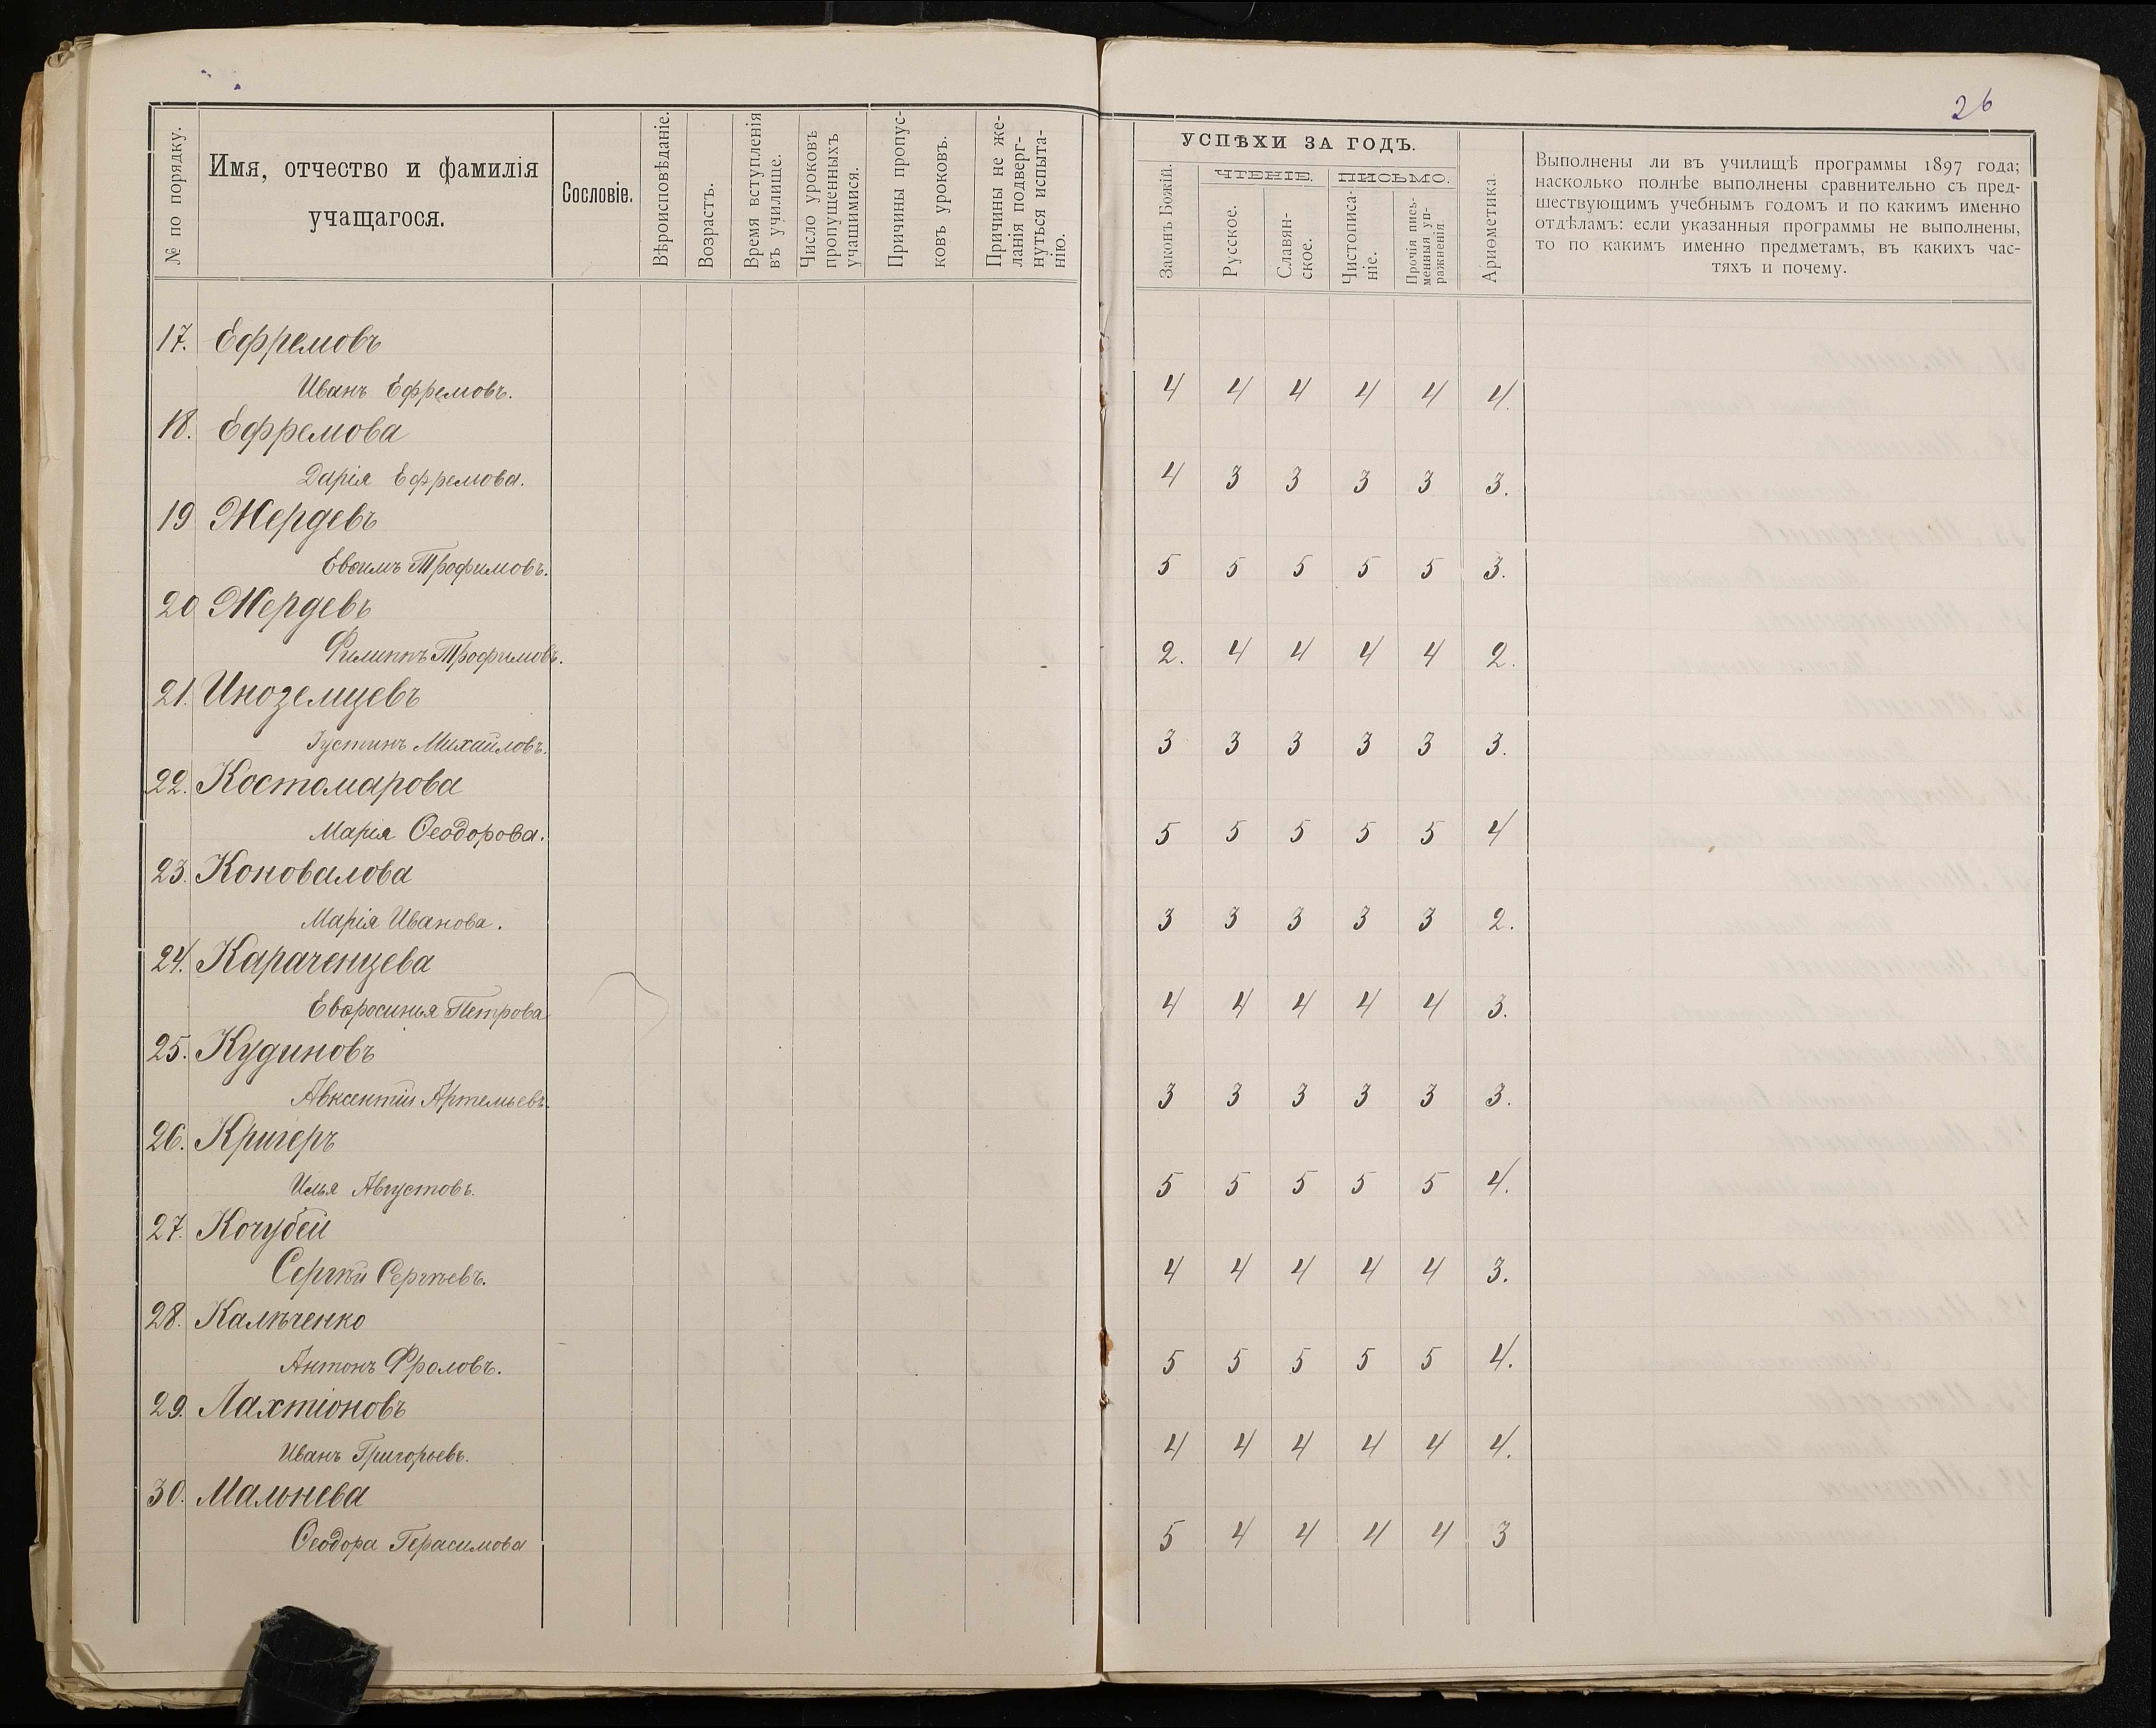 26
№ по порядку.
Имя, отчество и фамилія
учащагося.
Сословіе.
Вѣроисповѣданіе.
Возрастъ.
Время вступленія
въ училище.
Число уроковъ
пропущенныхъ
учащимися.
Причины пропус-
ковъ уроковъ.
Причины не же-
ланія подверг-
нуться испыта-
нію.
УСПѢХИ ЗА ГОДЪ.
Законъ Божій.
ЧТЕНІЕ.
Русское.
Славян-
ское.
ПИСЬМО.
Чистописа-
ніе.
Прочія пись-
менныя уп-
ражненія
Ариѳметика.
Выполнены ли въ училищѣ программы 1897 года;
насколько полнѣе выполнены сравнительно съ пред-
шествующимъ учебнымъ годомъ и по какимъ именно
отдѣламъ: если указанныя программы не выполнены,
то по какимъ именно предметамъ, въ какихъ час-
тяхъ и почему.
17. Ефремовъ
Иванъ Ефремовъ. 4 4 4 4 4 4.
18. Ефремова
Дарія Ефремова. 4 3 3 3 3 3.
19 Жердевъ
Евѳимъ Трофимовъ. 5 5 5 5 5 3.
20 Жердевъ
Филиппъ Трофимовъ. 2. 4 4 4 4 2.
21. Иноземцевъ
Іустинъ Михайловъ. 3 3 3 3 3 3.
22. Костомарова
Марія Ѳеодорова. 5 5 5 5 5 4
23. Коновалова
Марія Иванова. 3 3 3 3 3 2.
24. Караченцева
Евфросинья Петрова 4 4 4 4 4 3.
25. Кудиновъ
Авксентій Артемьевъ. 3 3 3 3 3 3.
26. Кригеръ
Илья Августовъ. 5 5 5 5 5 4.
27. Кочубей
Сергѣй Сергѣевъ. 4 4 4 4 4 3.
28. Калѣченко
Антонъ Фроловъ. 5 5 5 5 5 4.
29. Лахтіоновъ
Иванъ Григорьевъ. 4 4 4 4 4 4.
30. Мальнева
Ѳеодора Герасимова 5 4 4 4 4 3